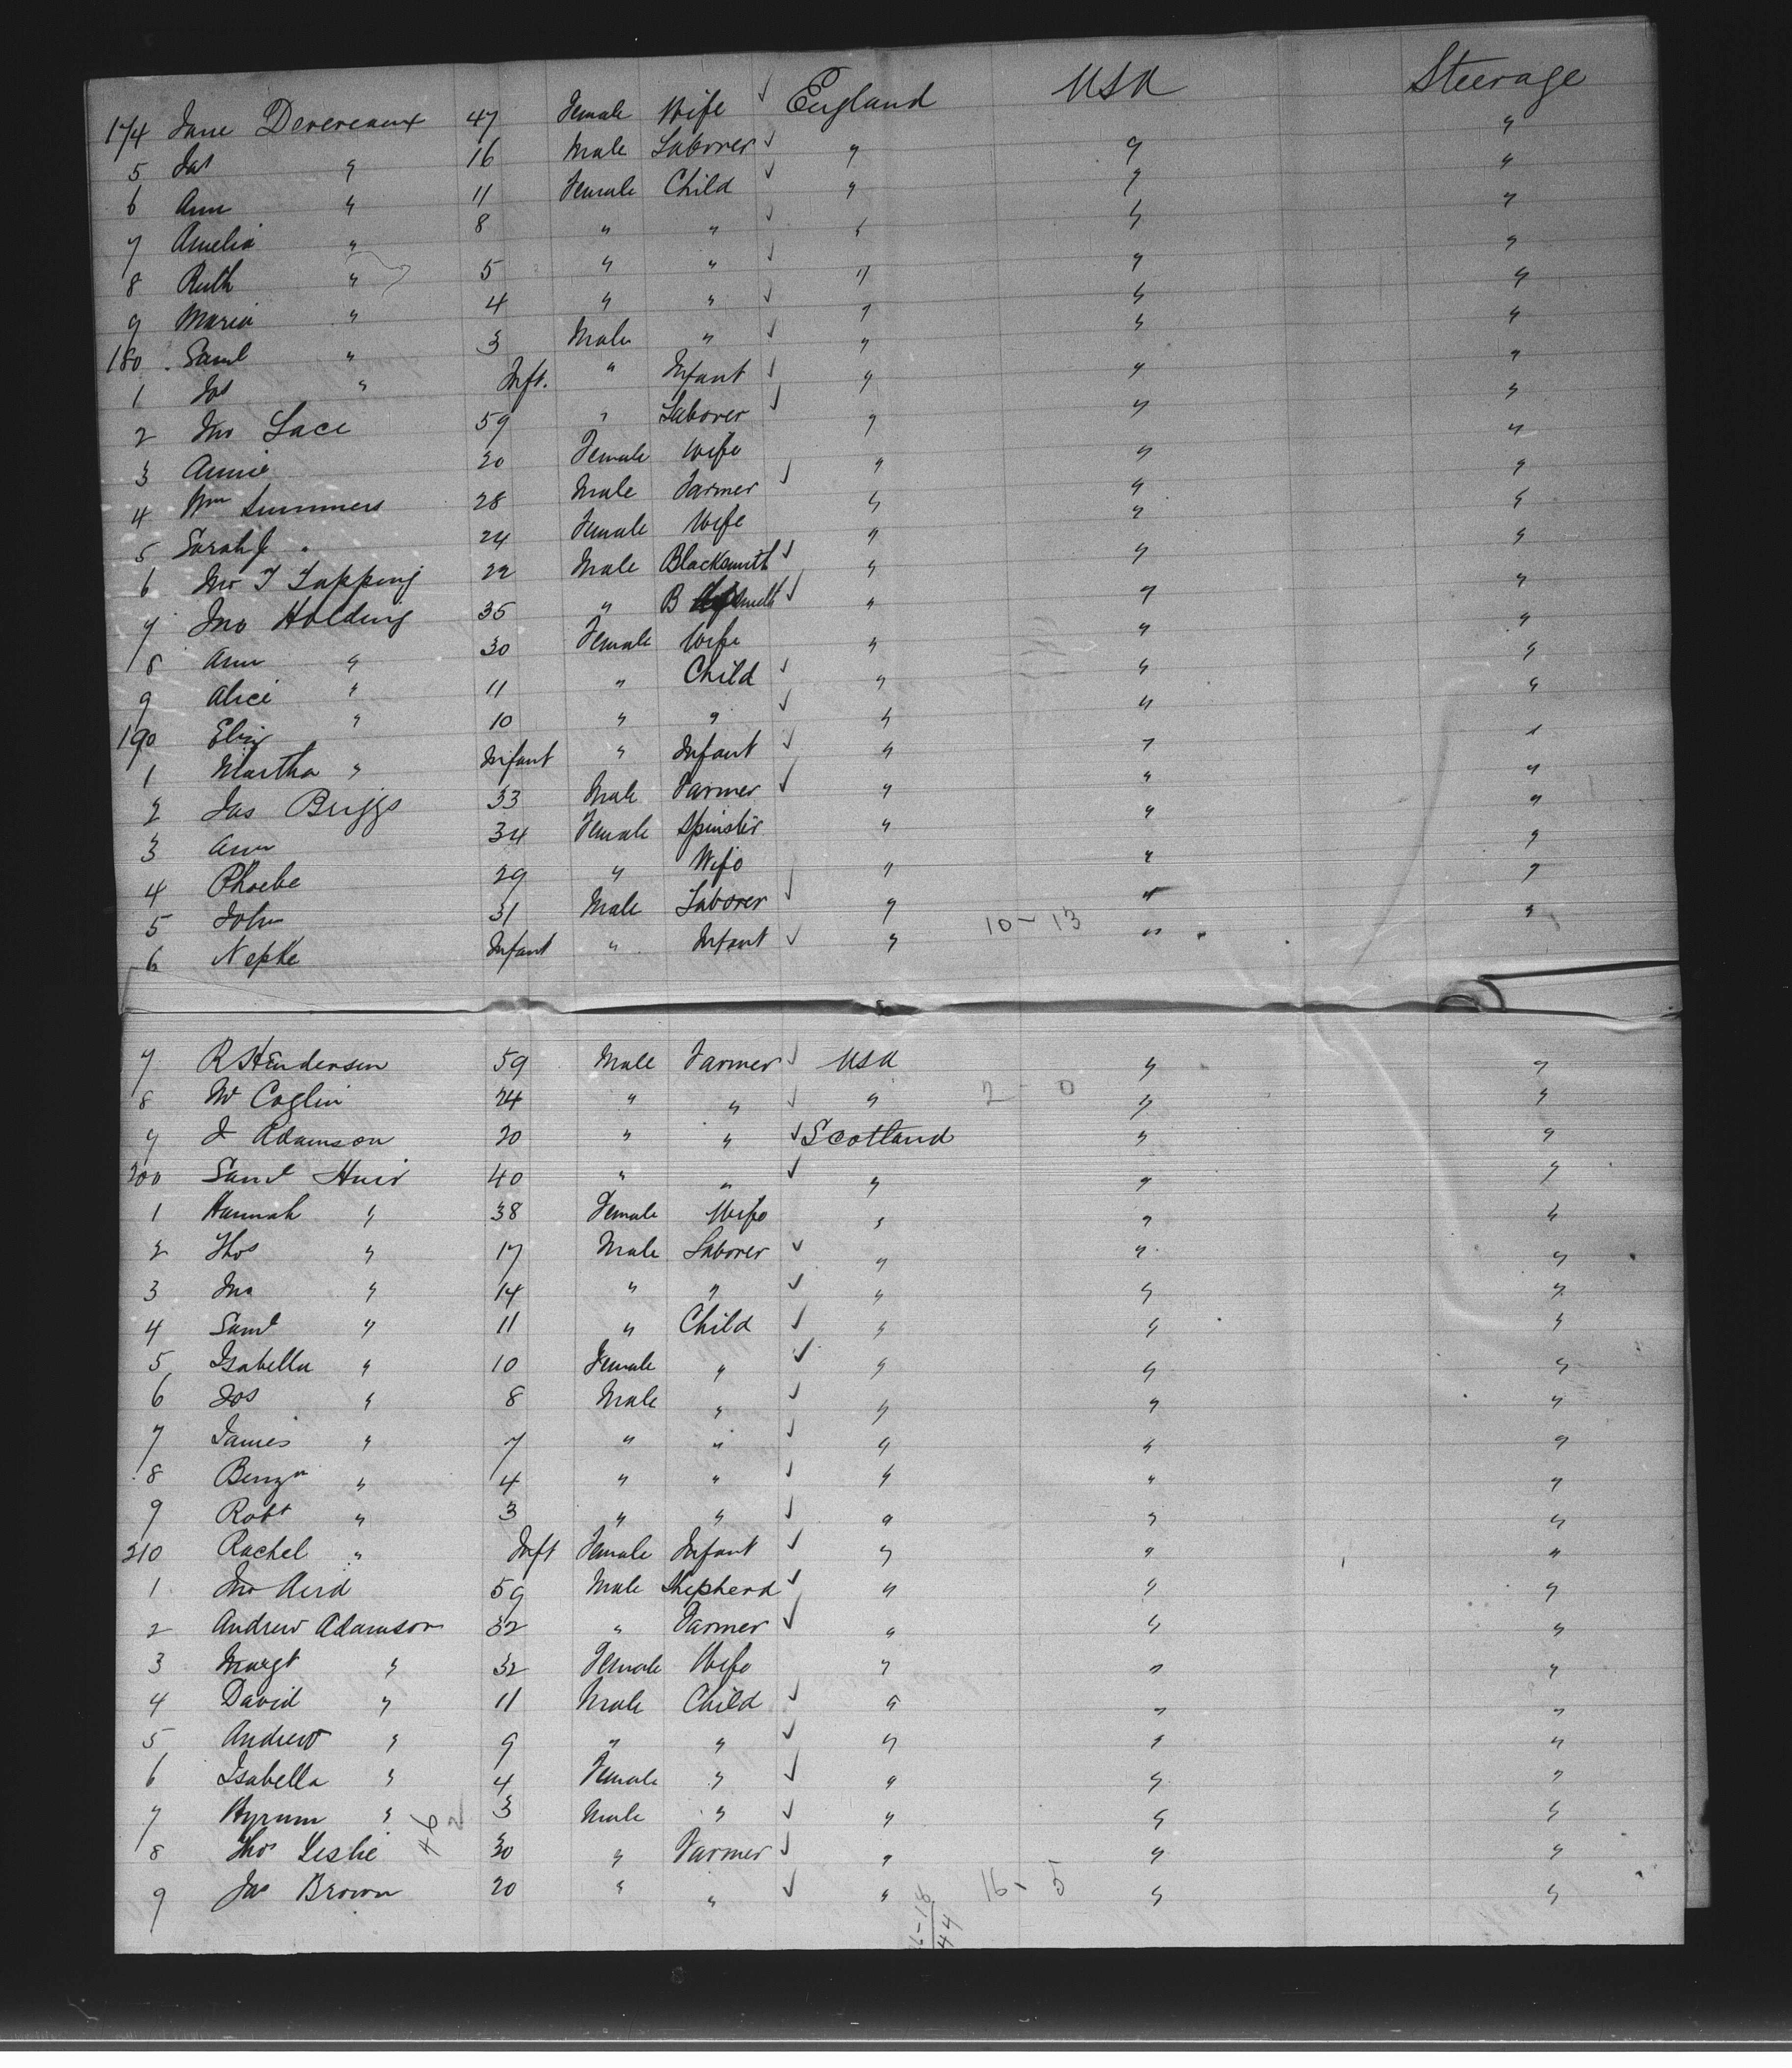 174 Jane Devereaux 47 Female Wife ✓ England USA Steerage
5 Jas " 16 Male Laborer ✓ " " "
6 Ann " 11 Female Child ✓ " " "
7 Amelia " 8 " " ✓ " " "
8 Ruth " 5 " " ✓ " " "
9 Maria " 4 " " ✓ " " "
180 Saml " 3 Male " ✓ " " "
1 Jos " Inft. " Infant ✓ " " "
2 Jno Lace 59 " Laborer ✓ " " "
3 Annie 20 Female Wife " " "
4 Wm Summers 28 Male Farmer ✓ " " "
5 Sarah J " 24 Female Wife " " "
6 Jno T Topping 22 Male Blacksmith ✓ " " "
7 Jno Holding 35 " B smith ✓ " " "
8 Ann " 30 Female Wife " " "
9 Alice " 11 " Child ✓ " " "
190 Eliz " 10 " " ✓ " " "
1 Martha " Infant " Infant ✓ " " "
2 Jas Briggs 33 Male Farmer ✓ " " "
3 Ann 34 Female Spinster " " "
4 Phoebe 29 " Wife " " "
5 John 31 Male Laborer ✓ " " "
6 Infant " Infant ✓ " 10-13 " "
7 R Henderson 59 Male Farmer ✓ USA " "
8 Coglin 24 " " ✓ " 2-0 " "
9 J Adamson 20 " " ✓ Scotland " "
200 Saml Huir 40 " " ✓ " " "
1 Hannah " 38 Female Wife " " "
2 Thos " 17 Male Laborer ✓ " " "
3 Jno " 14 " " ✓ " " "
4 Saml " 11 " Child ✓ " " "
5 Isabella " 10 Female " ✓ " " "
6 Jos " 8 Male " ✓ " " "
7 James " 7 " " ✓ " " "
8 Benjn " 4 " " ✓ " " "
9 Robt " 3 " " ✓ " " "
210 Rachel " Inft Female Infant ✓ " " "
1 Jno Aird 59 Male Shepherd ✓ " " "
2 Andrew Adamson 32 " Farmer ✓ " " "
3 Margt " 32 Female Wife " " "
4 David " 11 Male Child ✓ " " "
5 Andrew " 9 " " ✓ " " "
6 Isabella " 4 Female " ✓ " " "
7 Hyrum " 3 Male " ✓ " " "
8 Thos Leslie 46 2 30 " Farmer ✓ " " "
9 Jas Brown 20 " " ✓ " 16-5 " "
44